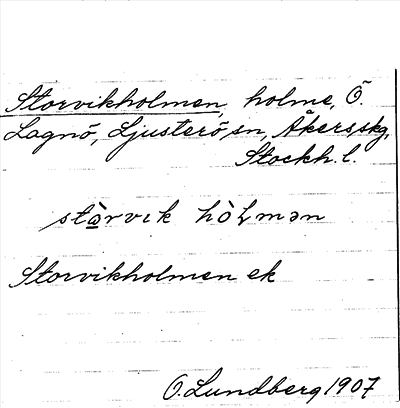 Storvikholmen, holme, Ö.
Lagnö, Ljusterö sn, Åkers skg,
Stockh. l.
stàrvik hòlmən
Storvikholmen ek
O. Lundberg 1907